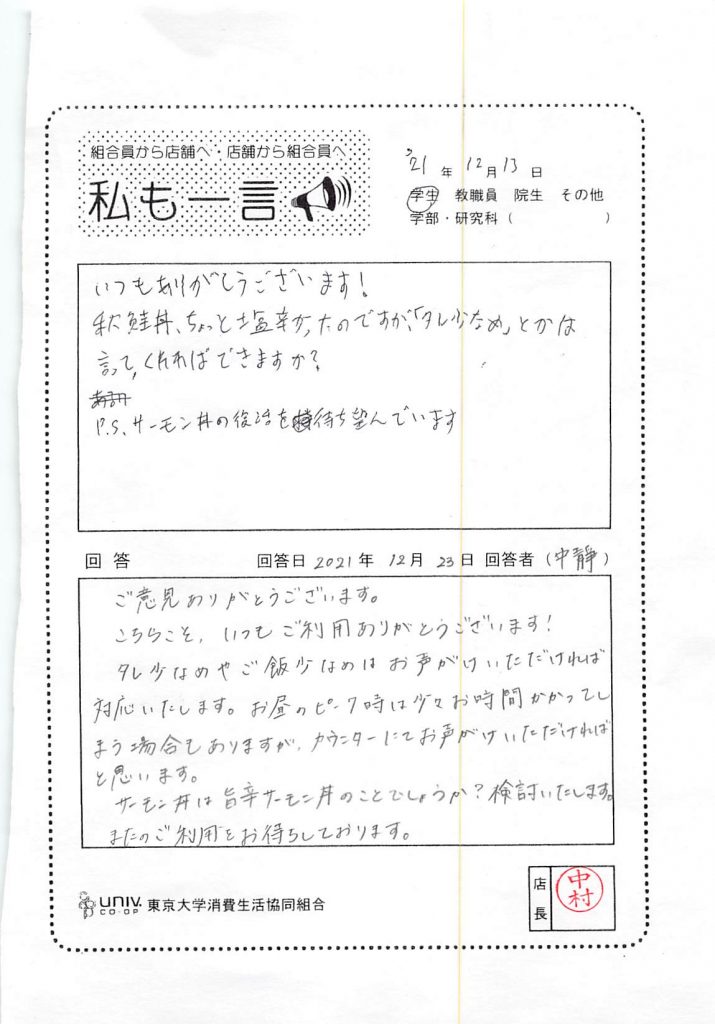 組合員から店舗へ・店舗から組合員へ
私も一言
'21年 12月 13日
学生 教職員 院生 その他
学部・研究科（ ）
いつもありがとうございます！
秋鮭丼、ちょっと塩辛かったのですが、「タレ少なめ」とかは
言ってくれればできますか？
P.S. サーモン丼の復活を待ち望んでいます
回答 回答日 2021年 12月 23日 回答者（中静）
ご意見ありがとうございます。
こちらこそ、いつもご利用ありがとうございます！
タレ少なめやご飯少なめはお声がけいただければ
対応いたします。お昼のピーク時は少々お時間かかってし
まう場合もありますが、カウンターにてお声がけいただければ
と思います。
サーモン丼は旨辛サーモン丼のことでしょうか？検討いたします。
またのご利用をお待ちしております。
UNIV.
CO-OP
東京大学消費生活協同組合
店長
中村